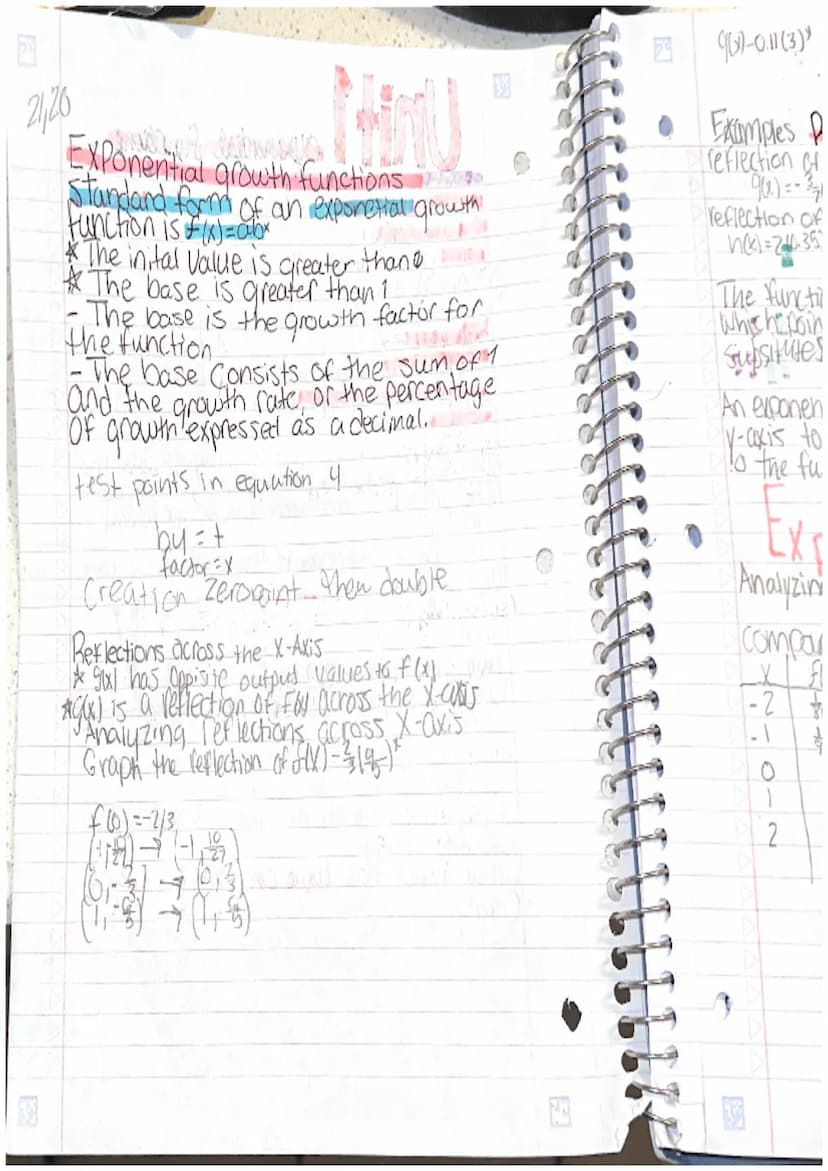 21,20
Unit 1
Exponential growth functions
Standard form of an exponetial growth
function is f(x)=abˣ
* The inital value is greater than 0
* The base is greater than 1
- The base is the growth factor for
the function
- The base consists of the sum of 1
and the growth rate, or the percentage
of growth expressed as a decimal.
test points in equation 4
by = +
factor = x
Creation Zeropoint then double
Reflections across the X-Axis
* g(x) has oppisite output values to f(x)
* g(x) is a reflection of f(x) across the x-axis
Analyzing reflections across X-axis
Graph the reflection of f(x) - 2/3 (9/5)ˣ
f(0) = -2/3
(-1, -10/27) → (-1, 10/27)
(0, -2/3) → (0, 2/3)
(1, -6/5) → (1, 6/5)
g(x)-0.11(3)ˣ
Examples
reflection of
g(x) = -
reflection of
h(x) = 2
The functi
which poin
Supsitutes
An exponen
y-axis to
to the fu
Exp
Analyzin
compar
x f(
-2
-1
0
1
2